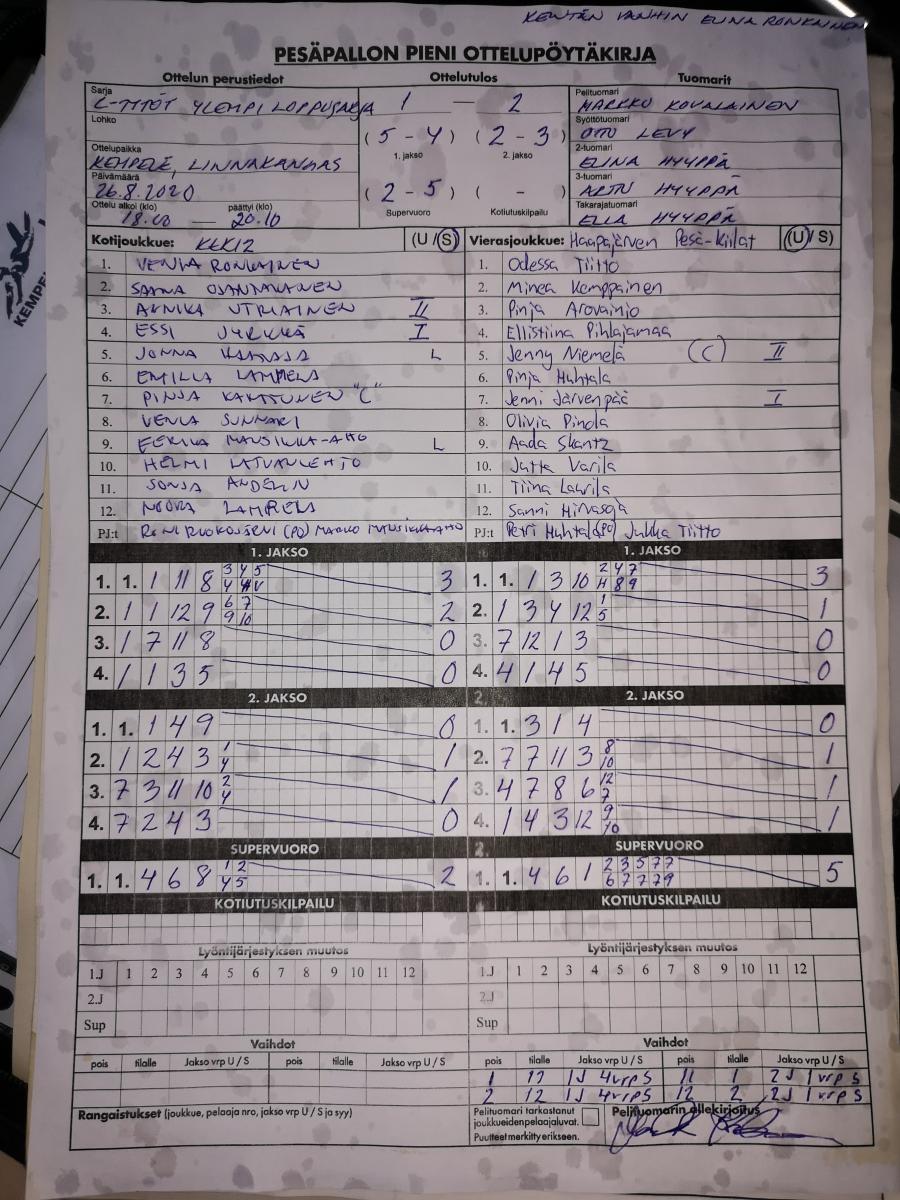 KENTÄN VANHIN ELINA RONKAINEN
PESÄPALLON PIENI OTTELUPÖYTÄKIRJA
Ottelun perustiedot Ottelutulos Tuomarit
Sarja
C-TYTÖT YLEMPI LOPPUSARJA
1 — 2
Pelituomari
MARKKO KOVALAINEN
Lohko
(5 - 4) (2 - 3)
1. jakso 2. jakso
Syöttötuomari
OTTO LEVY
Ottelupaikka
KEMPELE, LINNAKANGAS
2-tuomari
ELINA HYYPPÄ
Päivämäärä
26.8.2020
(2 - 5) ( - )
Supervuoro Kotiutuskilpailu
3-tuomari
ARTU HYYPPÄ
Ottelu alkoi (klo) päättyi (klo)
18.00 — 20.10
Takarajatuomari
ELLA HYYPPÄ
Kotijoukkue: KKK12 (U / S)
Vierasjoukkue: Haapajärven Pesä-Kiilat (U / S)
1. VENLA RONKAINEN
2. SAANA
3. ANNIKA UTRIAINEN II
4. ESSI JYRKKÄ I
5. JONNA L
6. EMILLA LAMPELA
7. PINJA KARTTUNEN "C"
8. VENLA SUNNARI
9. EERIKA MANSIKKA-AHO L
10. HELMI LATVANLEHTO
11. SONJA ANDELIN
12. NOORA LAMPELA
PJ:t RONI RUOKOJÄRVI (PJ) MARKO MANSIKKA-AHO
1. Odessa Tiitto
2. Minea Kemppainen
3. Pinja Arovainio
4. Ellistiina Pihlajamaa
5. Jenny Niemelä (C) II
6. Pinja Huhtala
7. Jenni Järvenpää I
8. Olivia Pinola
9. Aada Skantz
10. Jutta Varila
11. Tiina Laurila
12. Sanni Hirvasoja
PJ:t Petri Huhtala (PJ) Jukka Tiitto
1. JAKSO 1. JAKSO
1. 1. 1 11 8 3 4 5 3
2. 1 1 12 9 6 7 2
9 10
3. 1 7 11 8 0
4. 1 1 3 5 0
1. 1. 1 3 10 2 4 7 3
4 8 9
2. 1 3 4 12 1 1
5
3. 7 12 1 3 0
4. 4 1 4 5 0
2. JAKSO 2. JAKSO
1. 1. 1 4 9 0
2. 1 2 4 3 1 1
4
3. 7 3 11 10 2 1
4
4. 7 2 4 3 0
1. 1. 3 1 4 0
2. 7 7 11 3 8 1
10
3. 4 7 8 6 12 1
7
4. 1 4 3 12 9 1
10
SUPERVUORO SUPERVUORO
1. 1. 4 6 8 1 2 2
4 5
1. 1. 4 6 1 2 3 5 7 7 5
6 7 7 7 9
KOTIUTUSKILPAILU KOTIUTUSKILPAILU
Lyöntijärjestyksen muutos Lyöntijärjestyksen muutos
1.J 1 2 3 4 5 6 7 8 9 10 11 12
2.J
Sup
1.J 1 2 3 4 5 6 7 8 9 10 11 12
2.J
Sup
Vaihdot Vaihdot
pois tilalle Jakso vrp U / S pois tilalle Jakso vrp U / S
pois tilalle Jakso vrp U / S pois tilalle Jakso vrp U / S
1 11 1J 4vrp S 11 1 2J 1vrp S
2 12 1J 4vrp S 12 2 2J 1vrp S
Rangaistukset (joukkue, pelaaja nro, jakso vrp U / S ja syy)
Pelituomari tarkastanut
joukkueidenpelaajaluvat.
Puutteet merkitty erikseen.
Pelituomarin allekirjoitus
KEMPE